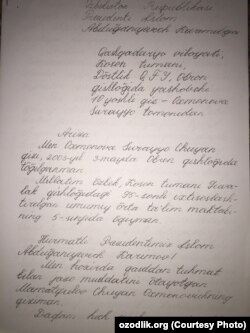 Uzbekiston Respublikasi
Prezidenti Islom
Abdug'aniyevich Karimovga
Qashqadaryo viloyati,
Koson tumani,
Do'stlik QFY, Obron
qishlog'ida yashovchi
10 yoshli qiz - Osmonova
Surayyo tomonidan
Ariza
Men Osmonova Surayyo Chuyan
qizi, 2005-yil 3 mayda Obron qishlog'ida
tug'ilganman.
Millatim o'zbek, Koson tumani
qishlog'idagi ixtisoslash-
tirilgan umumiy o'rta ta'lim maktabi-
ning 5-sinfida o'qiyman.
Hurmatli Prezidentimiz Islom
Abdug'aniyevich Karimov!
Men hozirda qaddan tuhmat
bilan jazo muddatini o'tayotgan
Chuyan Osmonovichning
qiziman.
Dadam hech
ozodlik.org (Courtesy Photo)